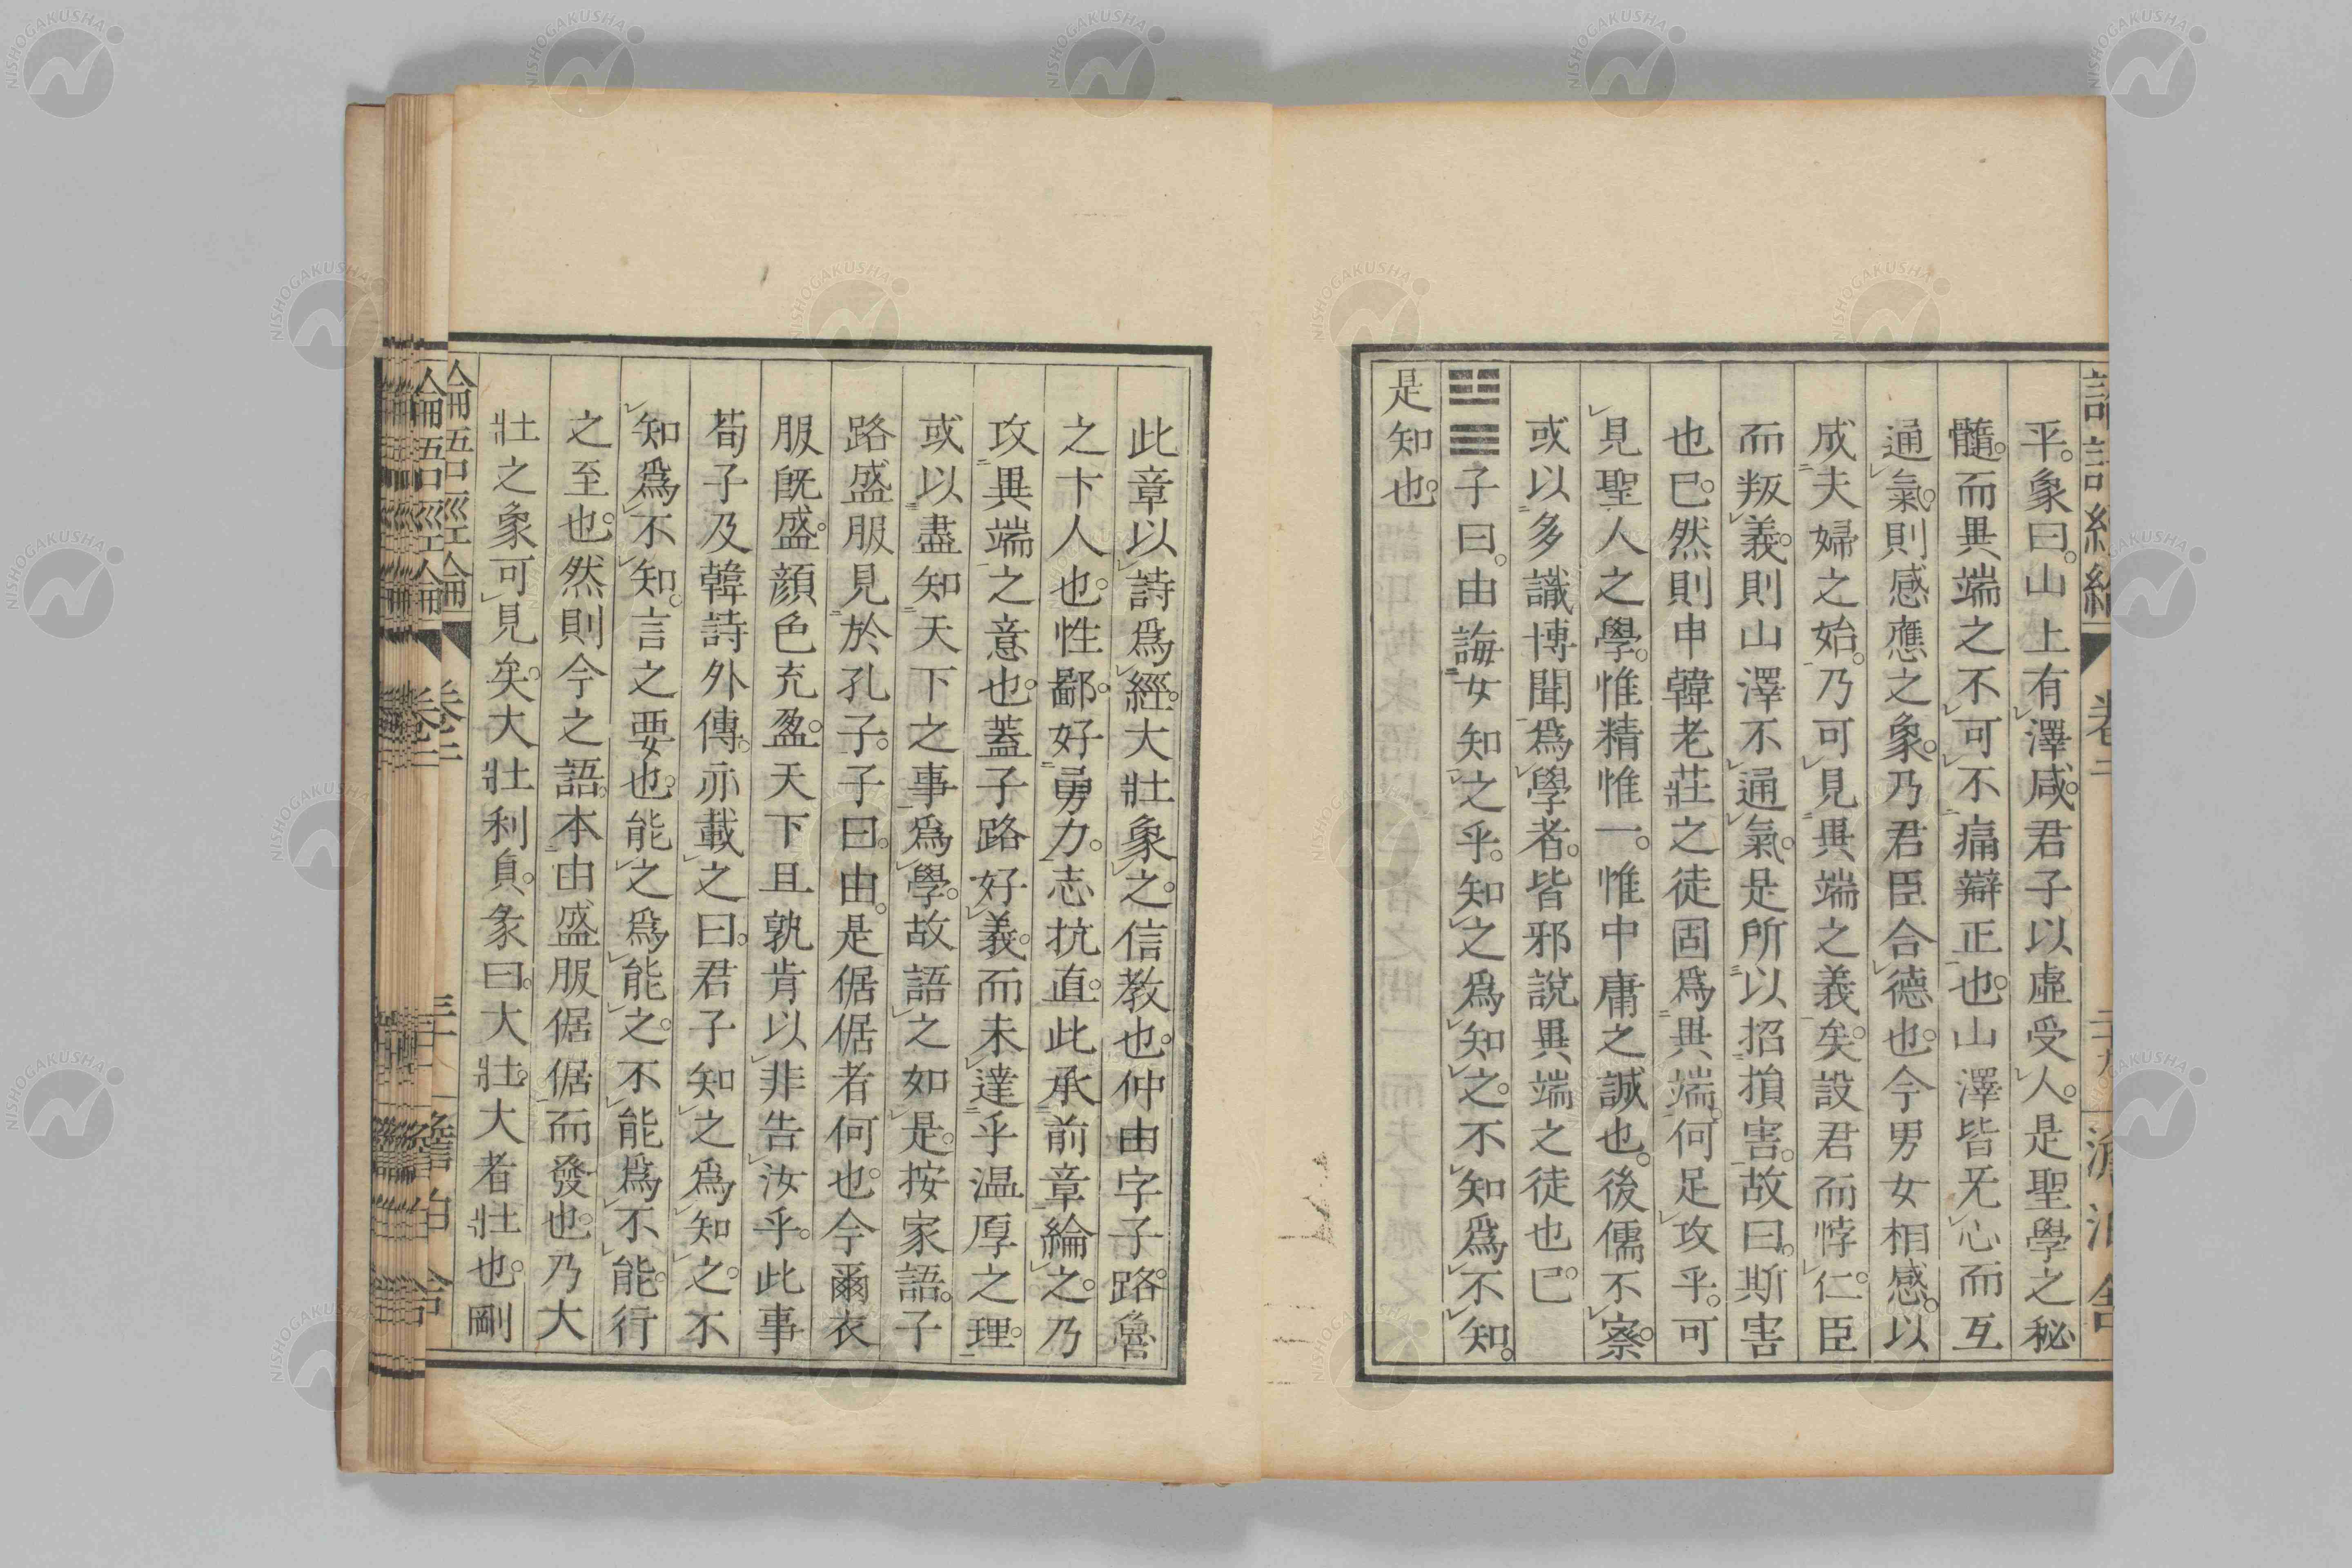 平。象曰。山上有澤咸。君子以虛受人。是聖學之秘
髓。而異端之不可不痛辯正也。山澤皆无心而互
通氣。則感應之象。乃君臣合德也。今男女相感。以
成夫婦之始。乃可見異端之義矣。設君而悖仁。臣
而叛義。則山澤不通氣。是所以招損害。故曰。斯害
也已。然則申韓老莊之徒固爲異端。何足攻乎。可
見聖人之學。惟精惟一。惟中庸之誠也。後儒不察。
或以多識博聞爲學者。皆邪說異端之徒也已。
䷡子曰。由誨女知之乎。知之爲知之。不知爲不知。
是知也。
此章以詩爲經。大壯象之。信教也。仲由字子路。魯
之卞人也。性鄙。好勇力。志抗直。此承前章綸之。乃
攻異端之意也。蓋子路好義。而未達乎温厚之理。
或以盡知天下之事爲學。故語之如是。按家語。子
路盛服見於孔子。子曰。由。是倨倨者何也。今爾衣
服既盛。顏色充盈。天下且孰肯以非告汝乎。此事
荀子及韓詩外傳。亦載之曰。君子知之爲知之。不
知爲不知。言之要也。能之爲能之。不能爲不能。行
之至也。然則今之語。本由盛服倨倨而發也。乃大
壯之象可見矣。大壯利貞。彖曰。大壯。大者壯也。剛
論語經綸 卷二